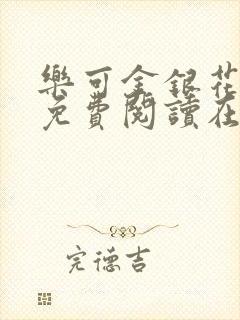 樂可金銀花
免費閱讀在
完德吉